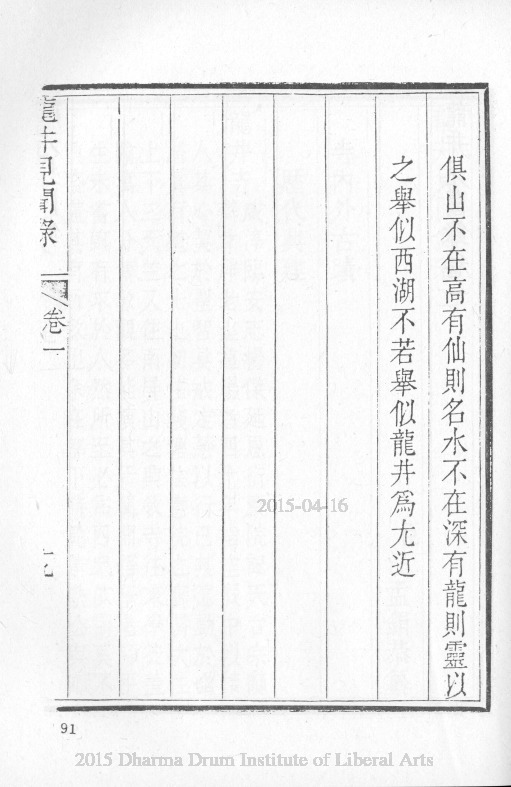 俱山不在高有仙則名水不在深有龍則靈以
之舉似西湖不若舉似龍井爲尢近
龍井見聞錄
卷一
2015-04-16
91
2015 Dharma Drum Institute of Liberal Arts